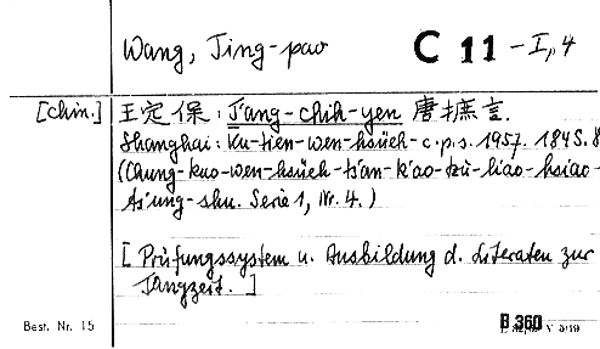 Wang, Ting-pao C 11 -I, 4
[Chin.] 王定保: T'ang-chih-yen 唐摭言.
Shanghai: Ku-tien-wen-hsüeh-c.p.s. 1957. 184S. 8
(Chung-kuo-wen-hsüeh-ts'an-k'ao-tzù-liao-hsiao-
ts'ung-shu. Serie 1, Nr. 4.)
[Prüfungssystem u. Ausbildung d. Literaten zur
Tangzeit.]
Best. Nr. 15 B 360